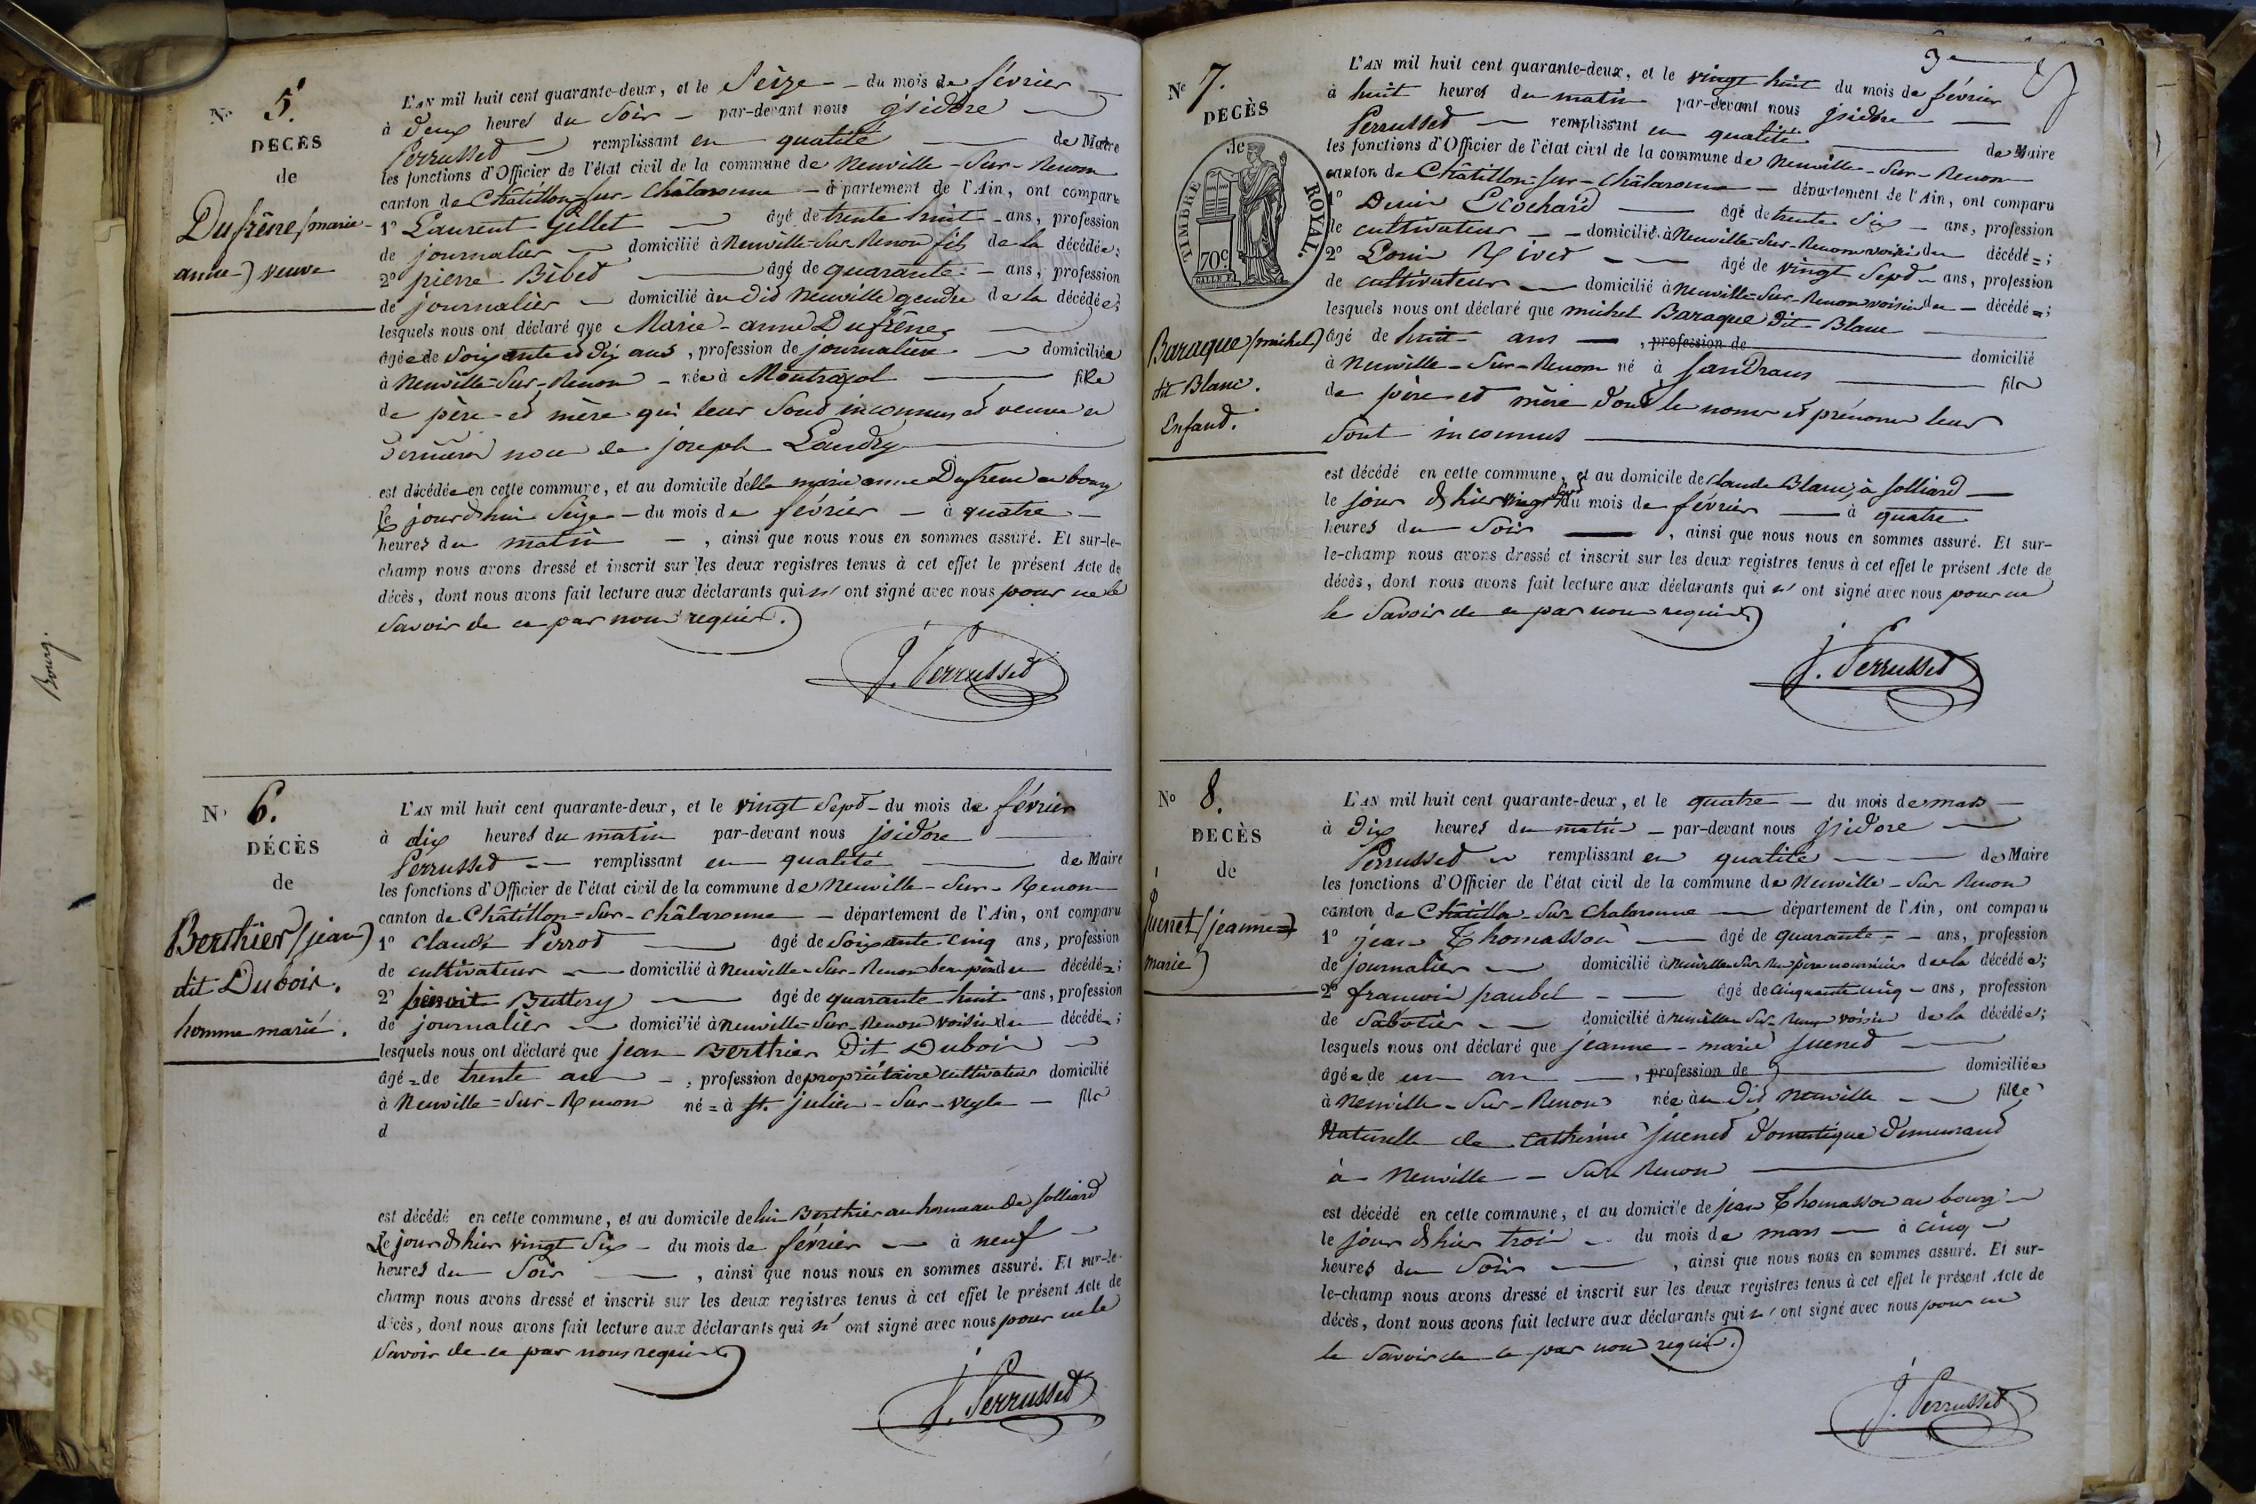 Bourg.
N° 5.
DÉCÈS
de
Dufrêne (marie-
anne) veuve
L'AN mil huit cent quarante-deux, et le Seize du mois de février
à deux heures du Soir par-devant nous jsidore
Perrussed remplissant en qualité de Maire
les fonctions d'Officier de l'état civil de la commune de Neuville-Sur-Renom
canton de Châtillon-sur-Châlaronne département de l'Ain, ont comparu
1° Laurent Gillet âgé de trente huit ans, profession
de journalier domicilié à Neuville-Sur-Renon fils de la décédée;
2° pierre Bibet âgé de quarante ans, profession
de journalier domicilié au dit Neuville gendre de la décédée;
lesquels nous ont déclaré que Marie-anne Dufrêne
âgée de Soixante et dix ans, profession de journalière domiciliée
à Neuville-Sur-Renon née à fille
de père et mère qui leur Sont inconnus et veuve en
dernière noce de joseph Landry
est décédée en cette commune, et au domicile d'elle marie anne Dufrene au bourg
le jourdhui Seize du mois de février à quatre
heures du matin, ainsi que nous nous en sommes assuré. Et sur-le-
champ nous avons dressé et inscrit sur les deux registres tenus à cet effet le présent Acte de
décès, dont nous avons fait lecture aux déclarants qui n' ont signé avec nous pour ne le
Savoir de ce par nous requis.
J. Perrussed
N° 6.
DÉCÈS
de
Berthier (jean)
dit Dubois.
homme marié.
L'AN mil huit cent quarante-deux, et le vingt Sept du mois de février
à dix heures du matin par-devant nous jsidore
Perrussed remplissant en qualité de Maire
les fonctions d'Officier de l'état civil de la commune de Neuville-Sur-Renom
canton de Châtillon-Sur-Châlaronne département de l'Ain, ont comparu
1° Claude Perrod âgé de Soixante cinq ans, profession
de cultivateur domicilié à Neuville-Sur-Renon beaupère du décédé;
2° benoit Buttery âgé de quarante huit ans, profession
de journalier domicilié à Neuville-Sur-Renon voisin du décédé;
lesquels nous ont déclaré que jean Berthier Dit Dubois
âgé de trente ans, profession de propriétaire cultivateur domicilié
à Neuville-Sur-Renom né à St. julien-Sur-veyle fils
d
est décédé en cette commune, et au domicile de lui Berthier au hameau de Solliard
Le jour dhier vingt Six du mois de février à neuf
heures du Soir, ainsi que nous nous en sommes assuré. Et sur-le-
champ nous avons dressé et inscrit sur les deux registres tenus à cet effet le présent Acte de
décès, dont nous avons fait lecture aux déclarants qui n' ont signé avec nous pour ne le
Savoir de ce par nous requis
J. Perrussed
3e
N° 7.
DÉCÈS
de
TIMBRE ROYAL.
70c
Baraque (michel)
dit Blanc.
Enfand.
L'AN mil huit cent quarante-deux, et le vingt huit du mois de février
à huit heures du matin par-devant nous jsidore
Perrussed remplissant en qualité de Maire
les fonctions d'Officier de l'état civil de la commune de Neuville-Sur-Renom
canton de Châtillon-sur-Châlaronne département de l'Ain, ont comparu
1° Denis Ecochard âgé de trente Six ans, profession
de cultivateur domicilié à Neuville-Sur-Renom voisin du décédé;
2° Louis Rived âgé de vingt Sept ans, profession
de cultivateur domicilié à Neuville-Sur-Renom voisin du décédé;
lesquels nous ont déclaré que michel Baraque Dit Blanc
âgé de huit ans, profession de domicilié
à Neuville-Sur-Renom né à Sandrans fils
de père et mère dont le nom et prénoms leur
Sont inconnus
est décédé en cette commune, et au domicile de Claude Blanc, à Solliard
le jour dhier vingt Sept du mois de février à quatre
heures du Soir, ainsi que nous nous en sommes assuré. Et sur-
le-champ nous avons dressé et inscrit sur les deux registres tenus à cet effet le présent Acte de
décès, dont nous avons fait lecture aux déclarants qui n' ont signé avec nous pour ne
le Savoir de ce par nous requis
J. Perrussed
N° 8.
DÉCÈS
de
Juenet (jeanne=
marie)
L'AN mil huit cent quarante-deux, et le quatre du mois de mars
à Dix heures du matin par-devant nous Jsidore
Perrussed remplissant en qualité de Maire
les fonctions d'Officier de l'état civil de la commune de Neuville-Sur Renon
canton de Châtillon-Sur Chalaronne département de l'Ain, ont comparu
1° jean Thomasson âgé de quarante ans, profession
de journalier domicilié à Neuville Sur Ren père nourricier de la décédée;
2° francois paubel âgé de cinquante cinq ans, profession
de Sabotier domicilié à Neuville Sur Renon voisin de la décédée;
lesquels nous ont déclaré que jeanne-marie Juened
âgée de un an, profession de domiciliée
à Neuville-Sur-Renon née au Dit Neuville fille
Naturelle de Catherine Juened Domestique Demeurand
à Neuville-Sur Renon
est décédé en cette commune, et au domicile de jean Thomasson au bourg
le jour dhier trois du mois de mars à cinq
heures du Soir, ainsi que nous nous en sommes assuré. Et sur-
le-champ nous avons dressé et inscrit sur les deux registres tenus à cet effet le présent Acte de
décès, dont nous avons fait lecture aux déclarants qui n' ont signé avec nous pour ne
le Savoir de ce par nous requis.
J. Perrussed